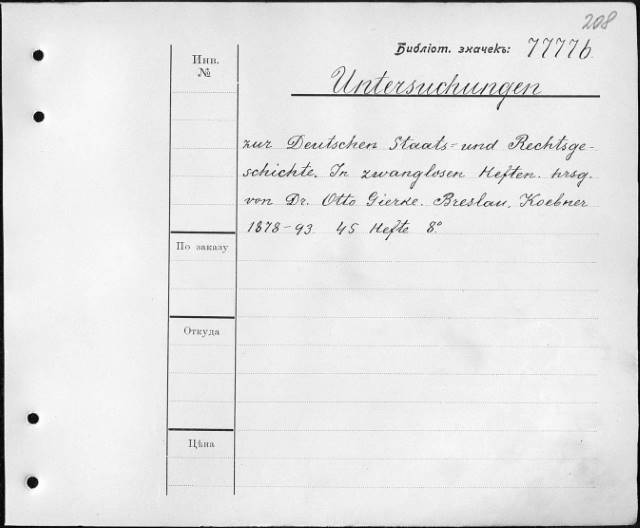 208
Библіот. значекъ: 7777b.
Untersuchungen
zur Deutschen Staats= und Rechtsge-
schichte. In zwanglosen Heften. hrsg.
von Dr. Otto Gierke. Breslau. Koebner
1878-93. 45 Hefte 8°
Инв.
№
По заказу
Откуда
Цѣна